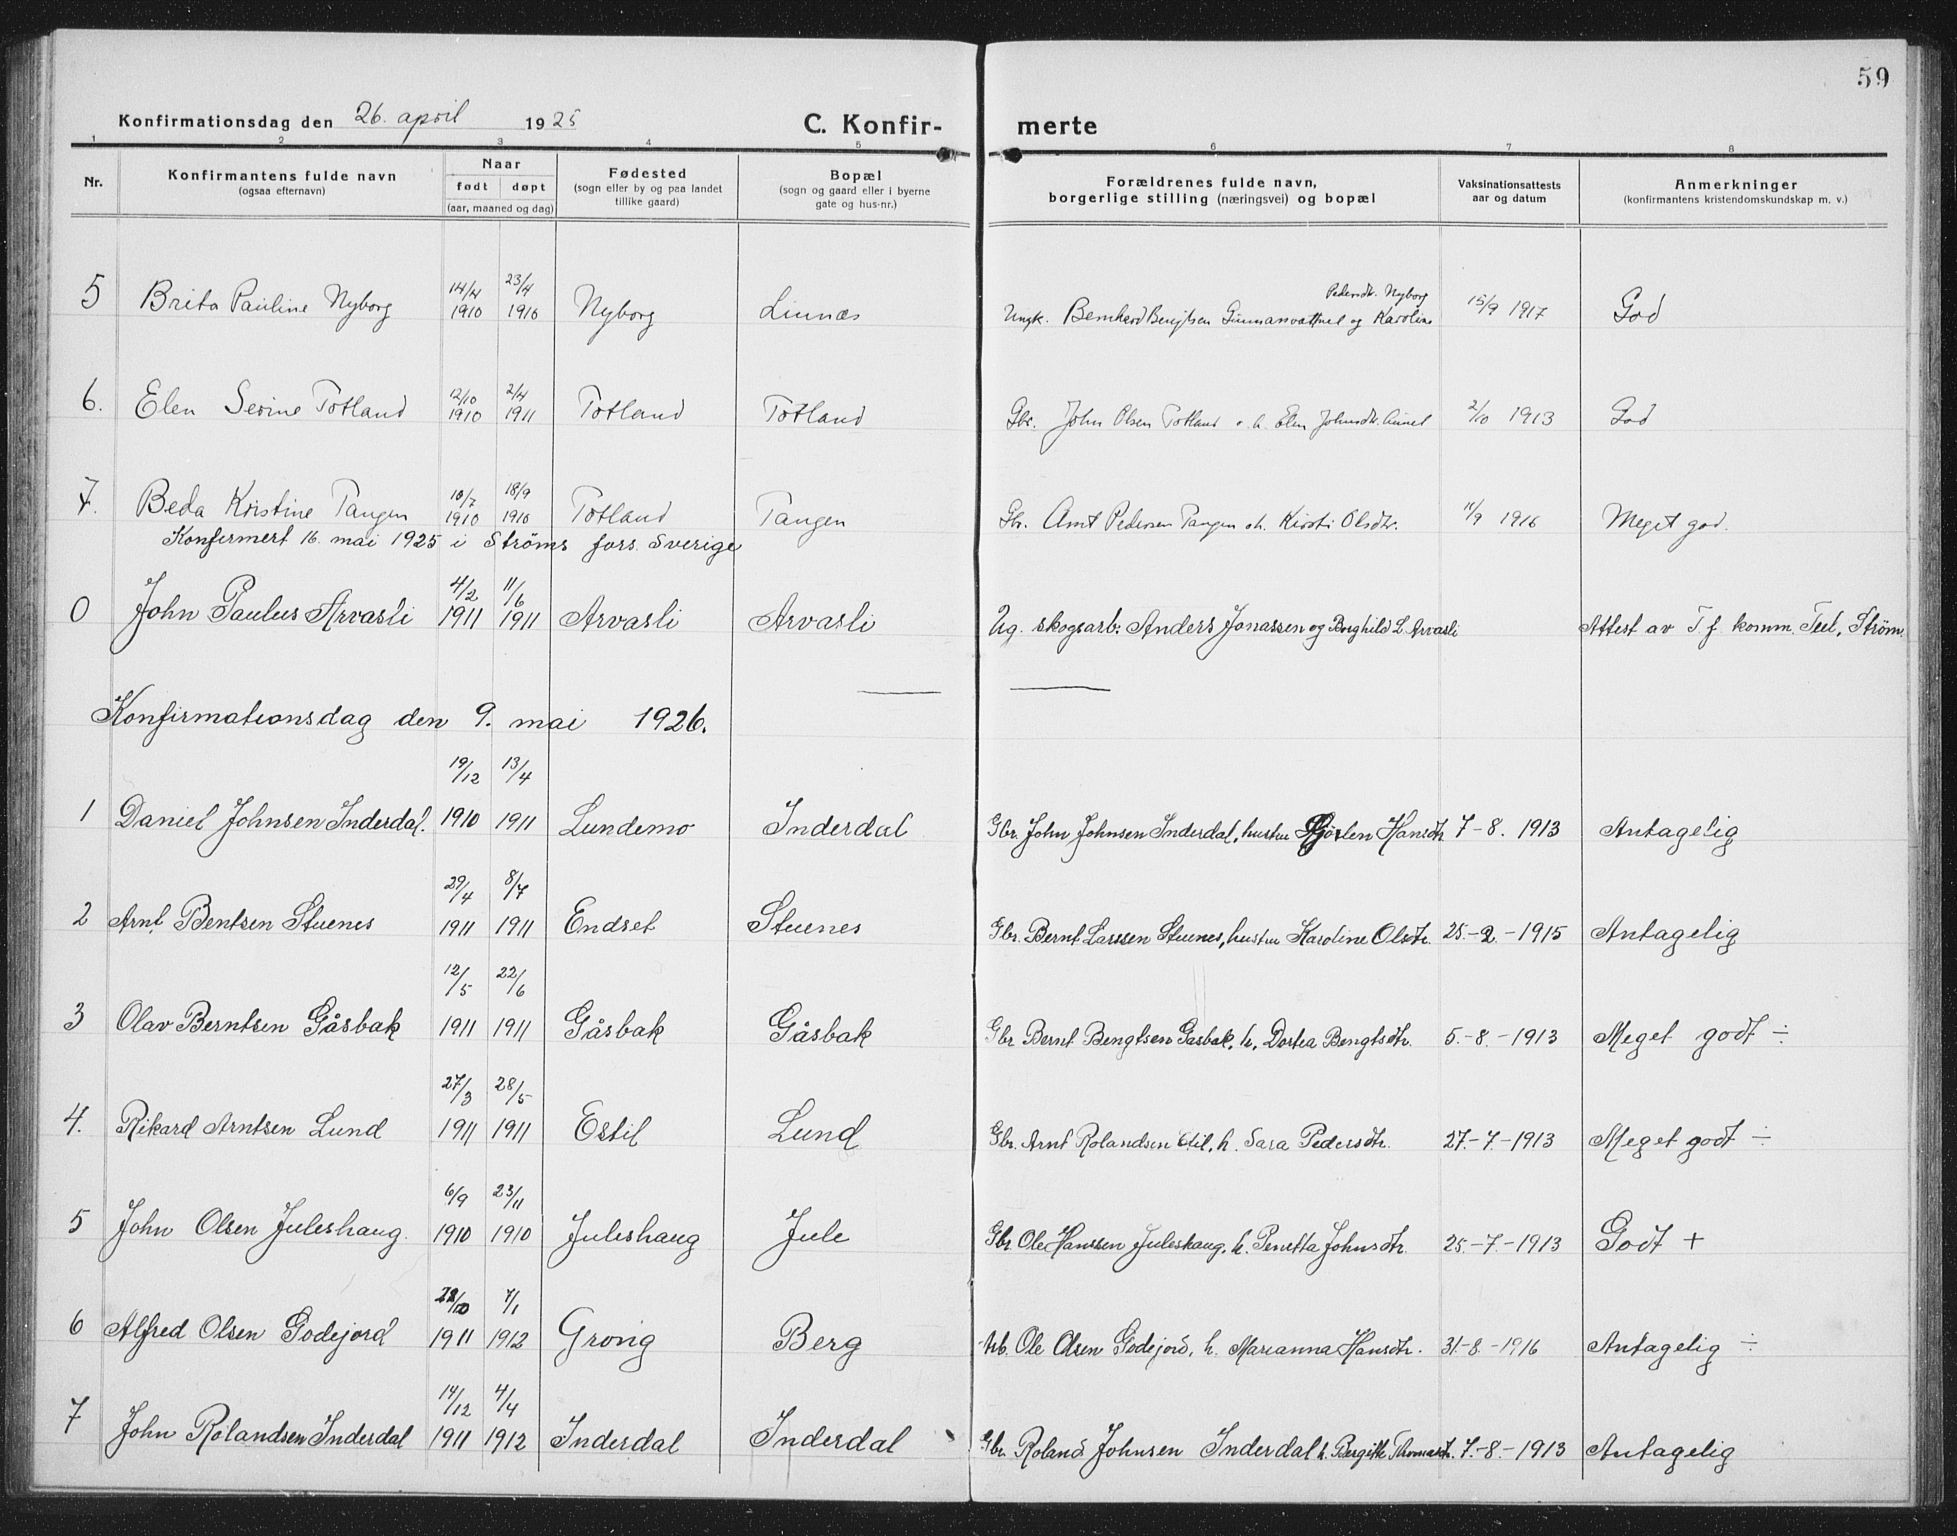 59
Konfirmationsdag den 26. april 1925
C. Konfir- merte
1 2 3 4 5 6 7 8
Nr. | Konfirmantens fulde navn (ogsaa efternavn) | Naar født døpt (aar, maaned og dag) | Fødested (sogn eller by og paa landet tillike gaard) | Bopæl (sogn og gaard eller i byerne gate og hus-nr.) | Forældrenes fulde navn, borgerlige stilling (næringsvei) og bopæl | Vaksinationsattests aar og datum | Anmerkninger (konfirmantens kristendomskundskap m. v.)
5 Brita Pauline Nyborg 14/4 1910 23/4 1910 Nyborg Linnæs Ungk. Bernhard Bengtsen Gunnarsvattnet og Karoline Pedersdtr. Nyborg 15/9 1917 God
6. Elen Serine Totland 12/10 1910 2/4 1911 Totland Totland Gbr. John Olsen Totland o. h. Elen Johnsdtr. 2/10 1913 God
7. Beda Kristine Tangen 10/7 1910 18/9 1910 Totland Tangen Gbr. Arnt Pedersen Tangen o h. Kirsti Olsdtr. 11/9 1916 Meget god.
Konfirmert 16. mai 1925 i Ströms fors. Sverige
0 John Paulus Arvasli 4/2 1911 11/6 1911 Arvasli Arvasli Ug. skogsarb: Anders Jonassen og Borghild L. Arvasli Attest av T. f. komm. Teel, Ström
Konfirmationsdag den 9. mai 1926.
1 Daniel Johnsen Inderdal. 19/12 1910 13/4 1911 Lundemo Inderdal Gbr. John Johnsen Inderdal, hustru Hansdtr. 7-8. 1913 Antagelig
2 Arnt Bentsen Stuenes 29/4 1911 8/7 1911 Endset Stuenes Gbr. Bernt Larssen Stuenes, hustru Karoline Olsdtr. 25.-2.-1915 Antagelig
3 Olav Berntsen Gåsbak 12/5 1911 22/6 1911 Gåsbak Gåsbak Gbr Bernt Bengtsen Gasbak, h. Dortea Bengtsdtr. 5.-8.-1913 Meget godt ÷
4. Rikard Arntsen Lund 27/3 1911 28/5 1911 Estil Lund Gbr. Arnt Rolandsen Estil, h. Sara Pedersdtr. 27.-7.-1913 Meget godt ÷
5 John Olsen Juleshaug. 6/9 1910 23/11 1910 Juleshaug Jule Gbr. Ole Hanssen Juleshaug, h. Penetta Johnsdtr. 25.-7.-1913 Godt +
6 Alfred Olsen Godejord 28/10 1911 7/1 1912 Grong Berg Arb. Ole Olsen Godejord, h. Marianna Hansdtr. 31.-8.-1916 Antagelig ÷
7 John Rolandsen Inderdal 14/12 1911 4/4 1912 Inderdal Inderdal Gbr. Roland Johnsen Inderdal h. Bergitte Thomasdtr. 7.-8.-1913 Antagelig